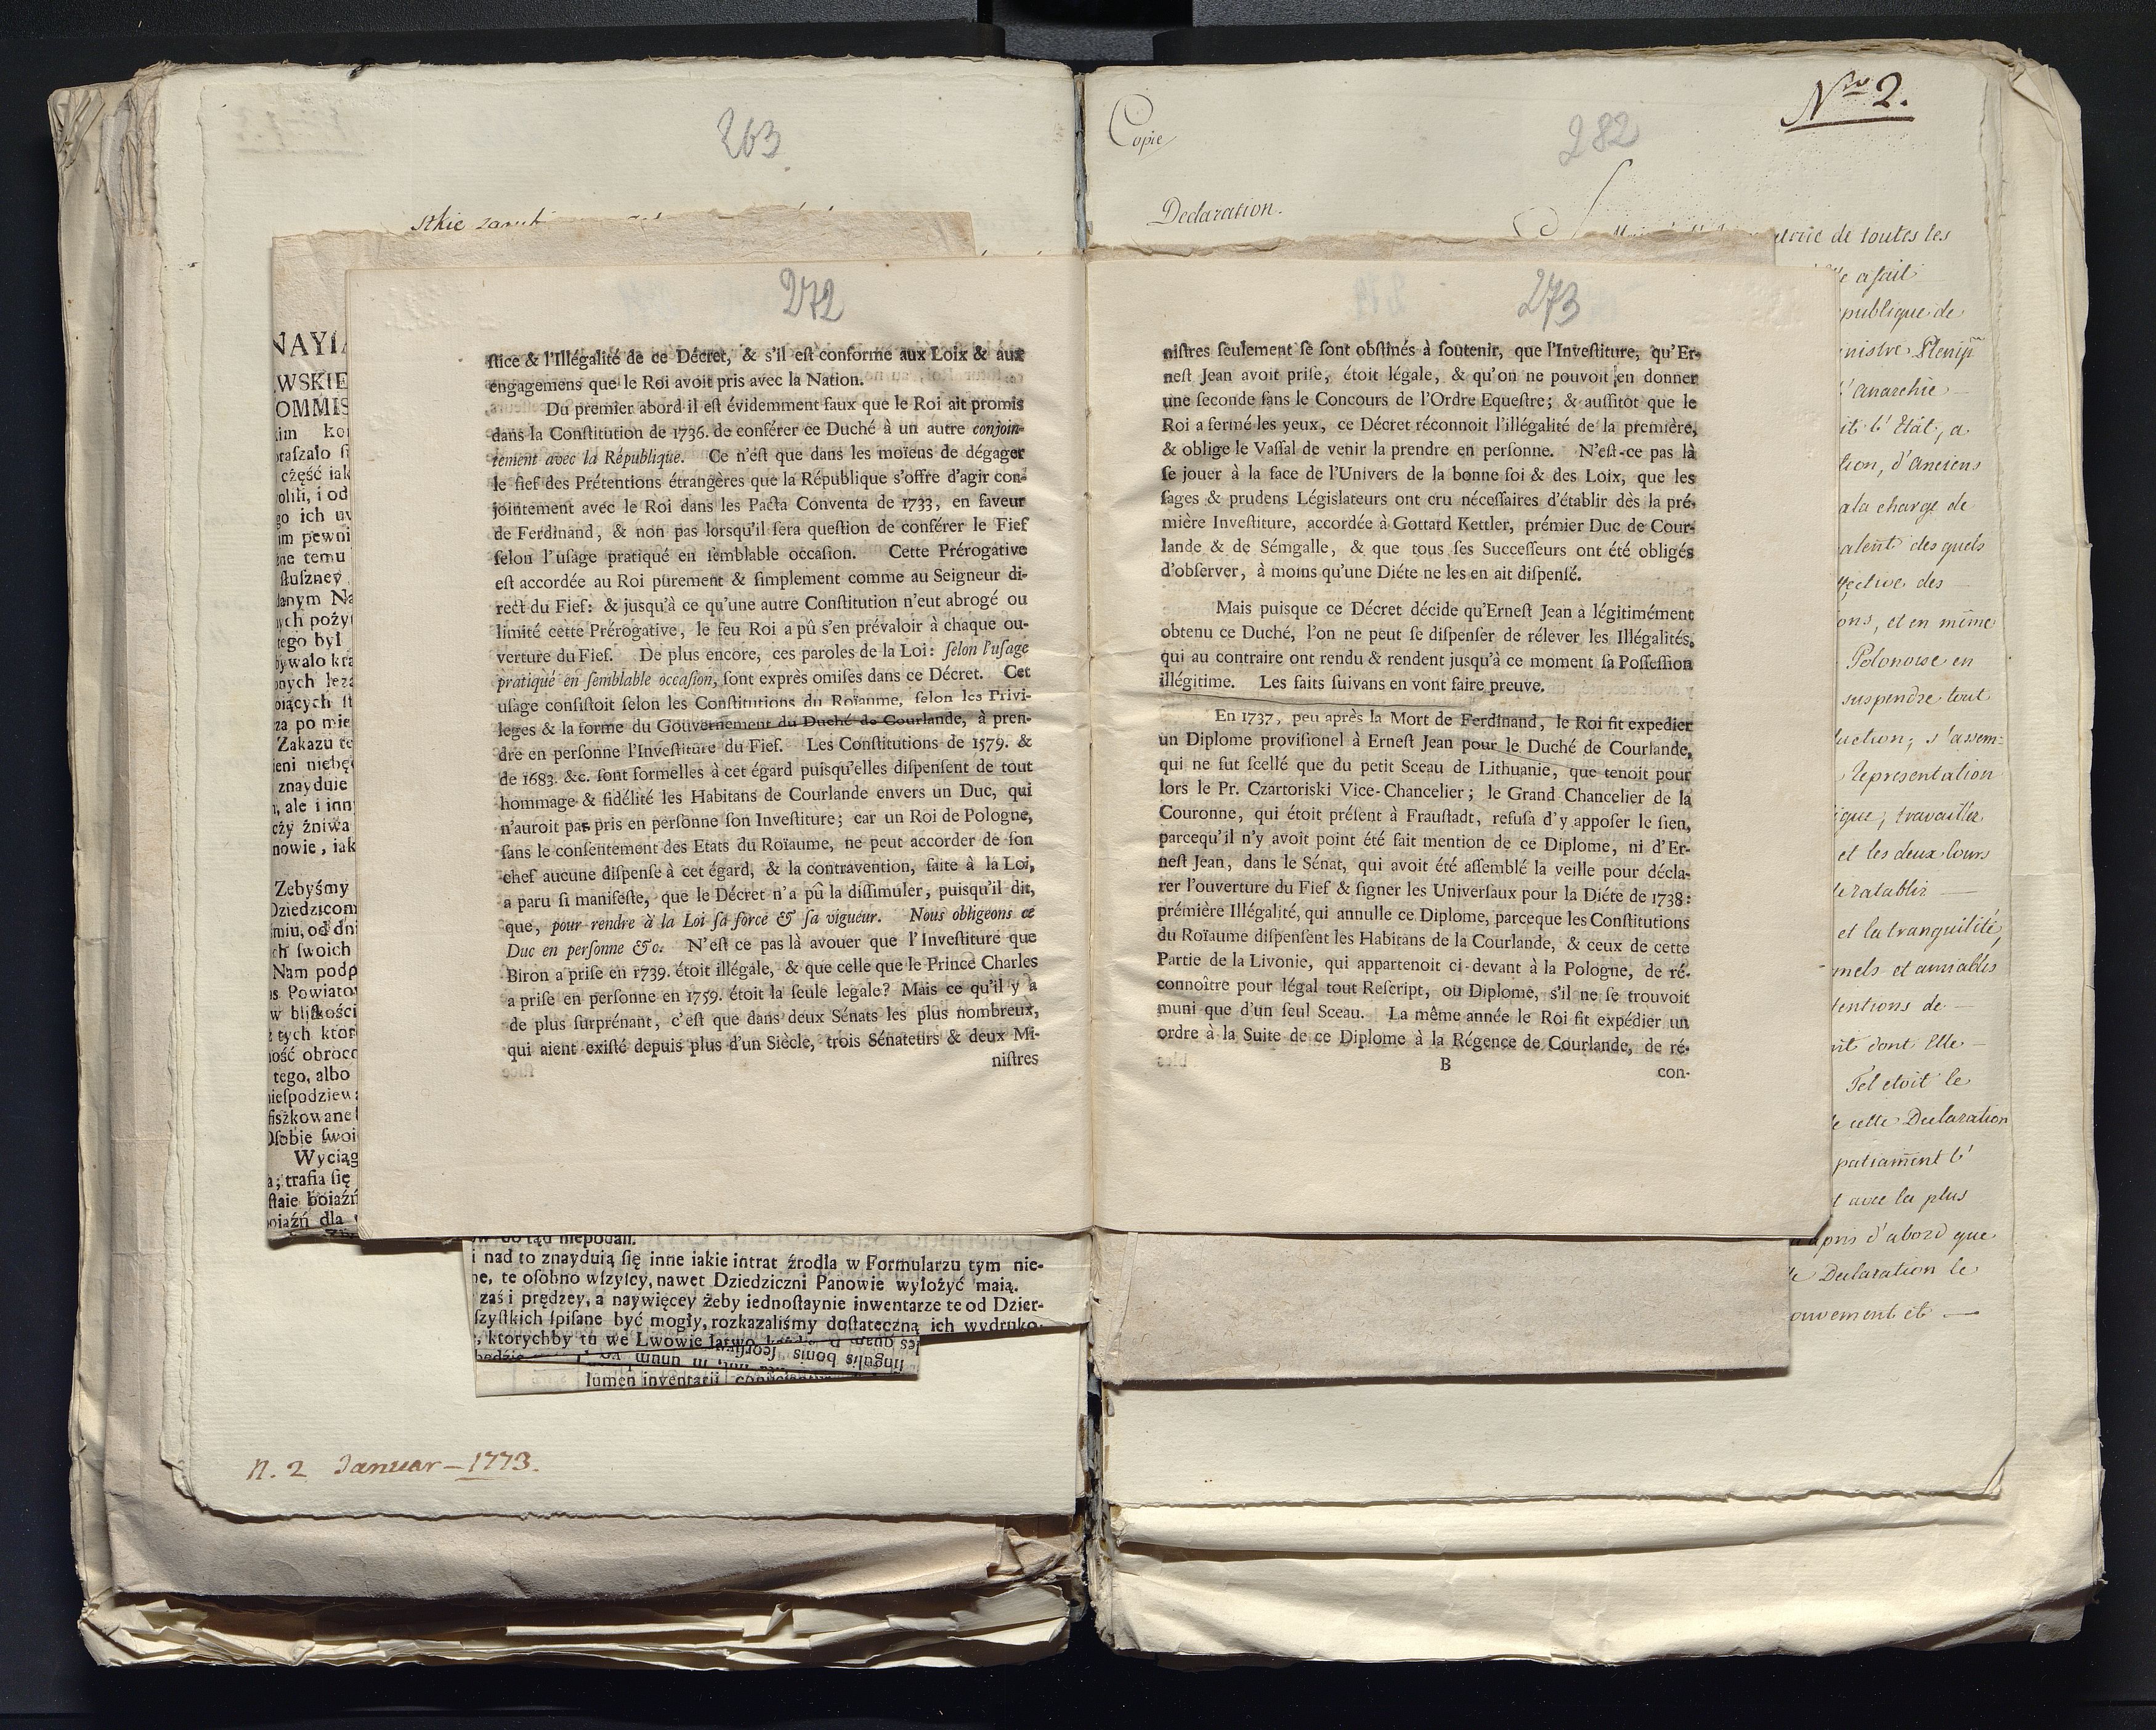 263
stkie
272
ſtice & l'Illégalité de ce Décret, & s'il eſt conforme aux Loix & aux
engagemens que le Roi avoit pris avec la Nation.
Du premier abord il eſt évidemment faux que le Roi ait promis
dans la Conſtitution de 1736. de conférer ce Duché à un autre conjoin-
tement avec la République. Ce n'éſt que dans les moïens de dégager
le fief des Prétentions étrangères que la République s'offre d'agir con-
jointement avec le Roi dans les Pacta Conventa de 1733, en faveur
de Ferdinand, & non pas lorsqu'il ſera queſtion de conférer le Fief
ſelon l'uſage pratiqué en ſemblable occaſion. Cette Prérogative
eſt accordée au Roi purement & ſimplement comme au Seigneur di-
rect du Fief: & jusqu'à ce qu'une autre Conſtitution n'eut abrogé ou
limité cette Prérogative, le feu Roi a pû s'en prévaloir à chaque ou-
verture du Fief. De plus encore, ces paroles de la Loi: ſelon l'uſage
pratiqué en ſemblable occaſion, ſont exprès omiſes dans ce Décret. Cet
uſage conſiſtoit ſelon les Conſtitutions du Roïaume, ſelon les Privi-
leges & la forme du Gouvernement du Duché de Courlande, à pren-
dre en perſonne l'Inveſtiture du Fief. Les Conſtitutions de 1579. &
de 1683. &c. ſont formelles à cet égard puisqu'elles diſpenſent de tout
hommage & fidélité les Habitans de Courlande envers un Duc, qui
n'auroit pas pris en perſonne ſon Inveſtiture; car un Roi de Pologne,
ſans le conſentement des Etats du Roïaume, ne peut accorder de ſon
chef aucune diſpenſe à cet égard, & la contravention, faite à la Loi,
a paru ſi manifeſte, que le Décret n'a pû la diſſimuler, puisqu'il dit,
que, pour rendre à la Loi ſa force & ſa vigueur. Nous obligeons ce
Duc en perſonne &c. N'eſt ce pas là avouer que l'Inveſtiture que
Biron a priſe en 1739. étoit illégale, & que celle que le Prince Charles
a priſe en perſonne en 1759. étoit la ſeule legale? Mais ce qu'il y a
de plus ſurprénant, c'eſt que dans deux Sénats les plus nombreux,
qui aient exiſté depuis plus d'un Siècle, trois Sénateurs & deux Mi-
niſtres
NAYIA
WSKIE
OMMIS
część iak
im pewni
ſłuſzney
tego był
za po mie
Zakazu te
znayduie
czy żniwa
nowie, iak
Zebyśmy
Dziedzicom
ch ſwoich
Nam podp
s. Powiatow
w bliſkości
tych ktor
ność obroco
tego, albo
Oſobie ſwoi
Wyciąg
a; trafia ſię
ſtaie boiaźń
oiaźń dla
i nad to znayduią ſię inne iakie intrat źrodła w Formularzu tym nie-
ne, te oſobno wſzyſcy, nawet Dziedziczni Panowie wyłożyć maią.
zaś i prędzey, a naywięcey żeby iednoſtaynie inwentarze te od Dzier-
ſzyſtkich ſpiſane być mogły, rozkazaliśmy doſtateczną ich wydruko-
, ktorychby tu we Lwowie
ſingulis bonis ſeorſim
lumen inventarii
n. 2 Januar – 1773.
Copie
282
Nro 2.
Declaration.
273
niſtres ſeulement ſe ſont obſtinés à ſoutenir, que l'Inveſtiture, qu'Er-
neſt Jean avoit priſe, étoit légale, & qu'on ne pouvoit en donner
une ſeconde ſans le Concours de l'Ordre Equeſtre; & auſſitôt que le
Roi a fermé les yeux, ce Décret réconnoit l'illégalité de la première,
& oblige le Vaſſal de venir la prendre en perſonne. N'eſt-ce pas là
ſe jouer à la face de l'Univers de la bonne foi & des Loix, que les
ſages & prudens Législateurs ont cru néceſſaires d'établir dès la pré-
mière Inveſtiture, accordée à Gottard Kettler, prémier Duc de Cour-
lande & de Sémgalle, & que tous ſes Succeſſeurs ont été obligés
d'obſerver, à moins qu'une Diéte ne les en ait diſpenſé.
Mais puisque ce Décret décide qu'Erneſt Jean a légitimément
obtenu ce Duché, l'on ne peut ſe diſpenſer de rélever les Illégalités,
qui au contraire ont rendu & rendent jusqu'à ce moment ſa Poſſeſſion
illégitime. Les faits ſuivans en vont faire preuve.
En 1737, peu après la Mort de Ferdinand, le Roi fit expedier
un Diplome proviſionel à Erneſt Jean pour le Duché de Courlande,
qui ne fut ſcellé que du petit Sceau de Lithuanie, que tenoit pour
lors le Pr. Czartoriski Vice-Chancelier; le Grand Chancelier de la
Couronne, qui étoit préſent à Frauſtadt, refuſa d'y appoſer le ſien,
parcequ'il n'y avoit point été fait mention de ce Diplome, ni d'Er-
neſt Jean, dans le Sénat, qui avoit été aſſemblé la veille pour décla-
rer l'ouverture du Fief & ſigner les Univerſaux pour la Diéte de 1738:
prémière Illégalité, qui annulle ce Diplome, parceque les Conſtitutions
du Roïaume diſpenſent les Habitans de la Courlande, & ceux de cette
Partie de la Livonie, qui appartenoit ci-devant à la Pologne, de ré-
connoître pour légal tout Reſcript, ou Diplome, s'il ne ſe trouvoit
muni que d'un ſeul Sceau. La même année le Roi fit expédier un
ordre à la Suite de ce Diplome à la Régence de Courlande, de ré-
B
con-
de toutes les
a fait
publique de
nistre Plenip
l'anarchie
it l'Etât, a
tion, d'anciens
a la charge de
des quels
des
ons, et en même
Polonoise en
suspendre tout
uction; s'assem-
Representation
ique, travaillée
et les deux Cours
retablir
et la tranquilité,
mels et amiables
tentions de
nt dont Elle
Tel etoit le
de cette Declaration
l'
t avec la plus
apris d'abord que
Declaration le
ouvement et